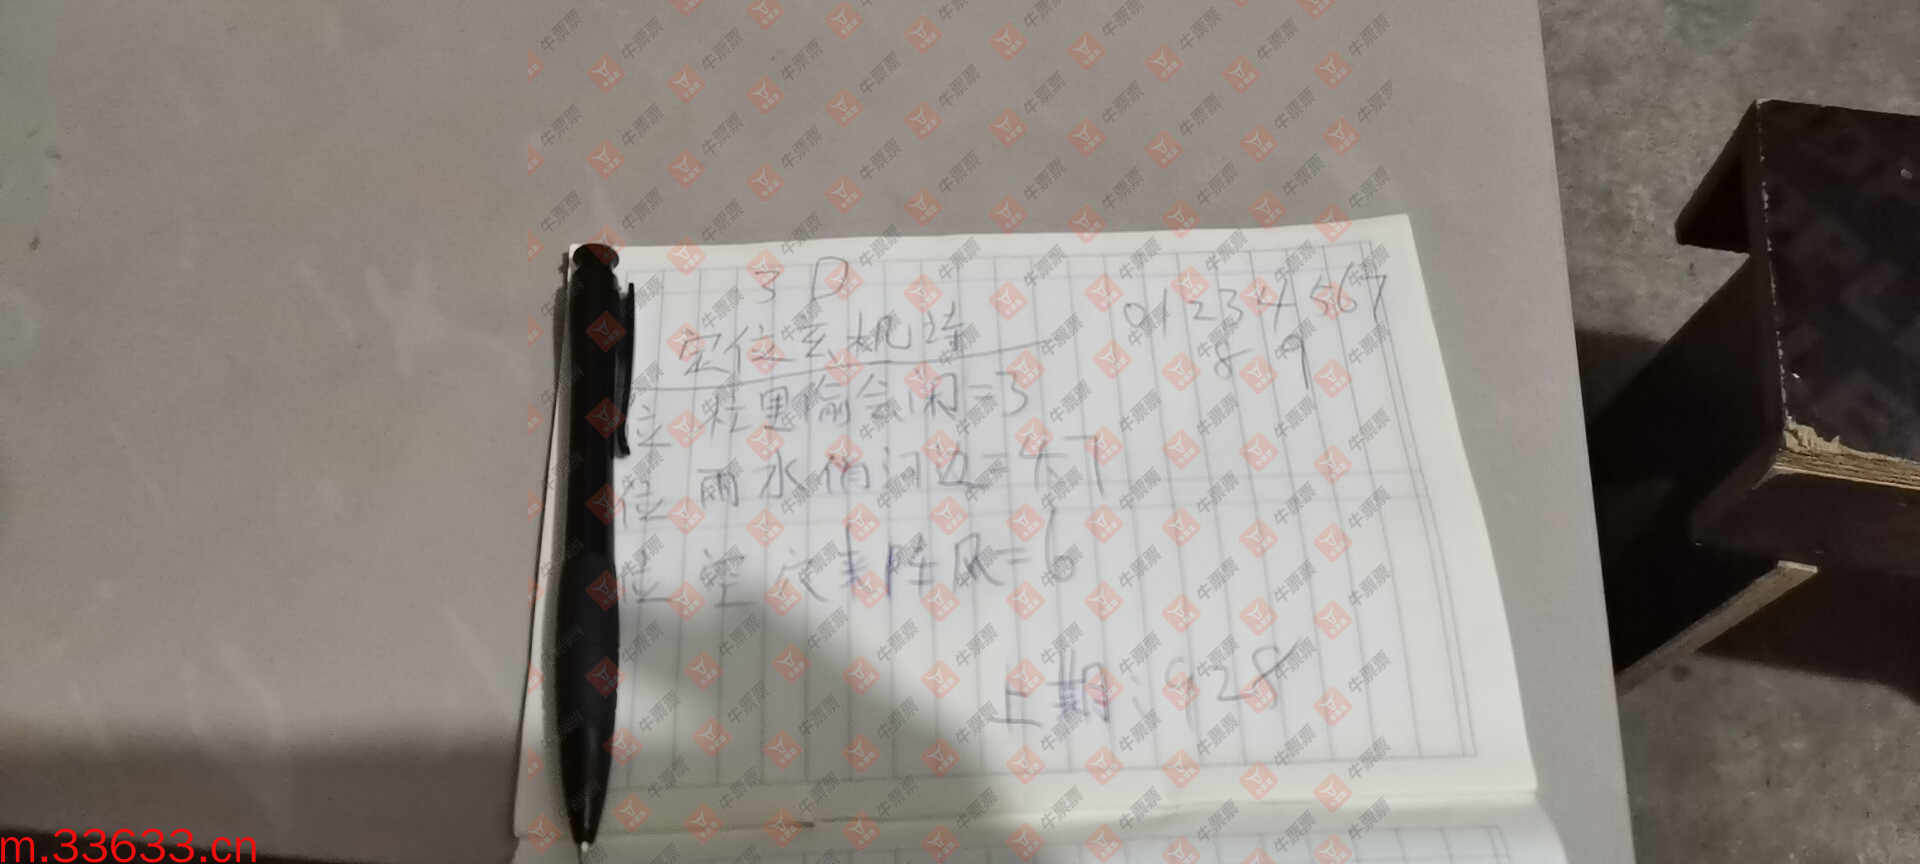 3D
0 1 2 3 4 5 6 7
8 9
定位玄机诗
位 社里偷会闲=3
位 雨水俏河边=47
位 空穴来阵风=6
上期:928
牛票票
m.33633.cn